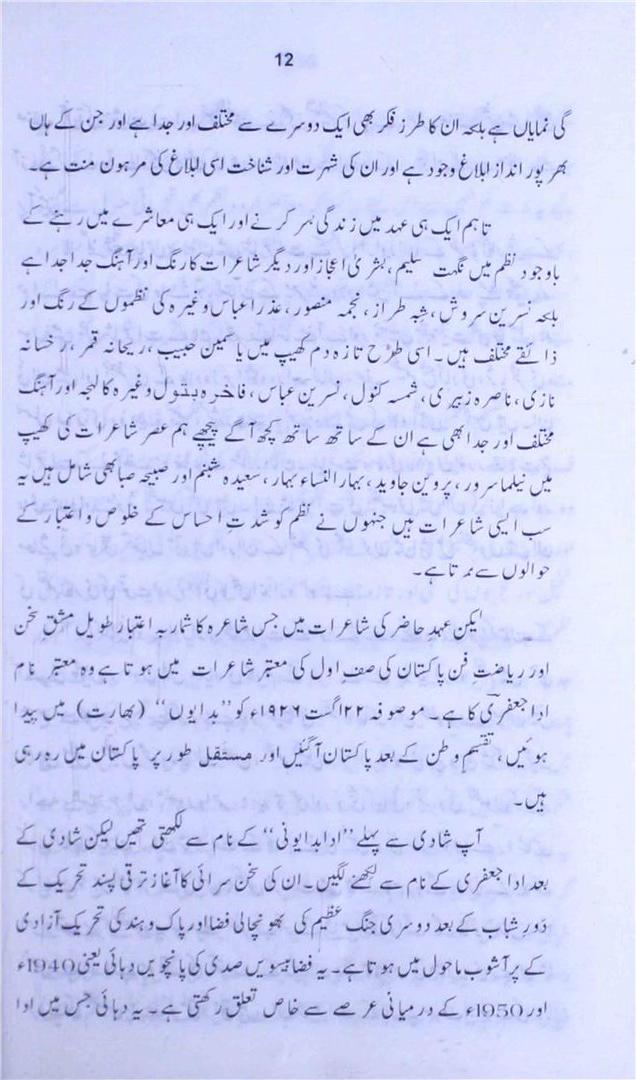 12
گی نمایاں ہے بلحہ ان کا طرز فکر بھی ایک دوسرے سے مختلف اور جدا ہے اور جن کے ہاں
بھر پور انداز ابلاغ وجود ہے اور ان کی شہرت اور شناخت اسی ابلاغ کی مرہون منت ہے۔
تاہم ایک ہی عہد میں زندگی بسر کرنے اور ایک ہی معاشرے میں رہنے کے
باوجود نظم میں نگہت سلیم، بشریٰ اعجاز اور دیگر شاعرات کا رنگ اور آہنگ جدا جدا ہے
بلحہ نسرین سروش، شبہ طراز، نجمہ منصور، عذرا عباس وغیرہ کی نظموں کے رنگ اور
ذائقے مختلف ہیں۔ اسی طرح تازہ دم کھیپ میں یاسمین حبیب، ریحانہ قمر، رخسانہ
نازی، ناصرہ زبیری، شمسہ کنول، نسرین عباس، فاخرہ بتول وغیرہ کا لہجہ اور آہنگ
مختلف اور جدا بھی ہے ان کے ساتھ ساتھ کچھ آگے پیچھے ہم عصر شاعرات کی کھیپ
میں نیلما سرور، پروین جاوید، بہار النساء بہار، سعیدہ شبنم اور صبیحہ صبا بھی شامل ہیں یہ
سب ایسی شاعرات ہیں جنہوں نے نظم کو شدت احساس کے خلوص و اعتبار کے
حوالوں سے برتا ہے۔
لیکن عہد حاضر کی شاعرات میں جس شاعرہ کا شمار بہ اعتبار طویل مشق سخن
اور ریاضت فن پاکستان کی صف اول کی معتبر شاعرات میں ہوتا ہے وہ معتبر نام
ادا جعفری کا ہے۔ موصوفہ ۲۲ اگست ۱۹۲۶ء کو "بدایوں" (بھارت) میں پیدا
ہوئیں، تقسیم وطن کے بعد پاکستان آگئیں اور مستقل طور پر پاکستان میں رہ رہی
ہیں۔
آپ شادی سے پہلے "ادا بدایونی" کے نام سے لکھتی تھیں لیکن شادی کے
بعد ادا جعفری کے نام سے لکھنے لگیں۔ ان کی سخن سرائی کا آغاز ترقی پسند تحریک کے
دورِ شباب کے بعد دوسری جنگ عظیم کی بھونچالی فضا اور پاک و ہند کی تحریک آزادی
کے پر آشوب ماحول میں ہوتا ہے۔ یہ فضا بیسویں صدی کی پانچویں دہائی یعنی 1940ء
اور 1950ء کے درمیانی عرصے سے خاص تعلق رکھتی ہے۔ یہ دہائی جس میں ادا